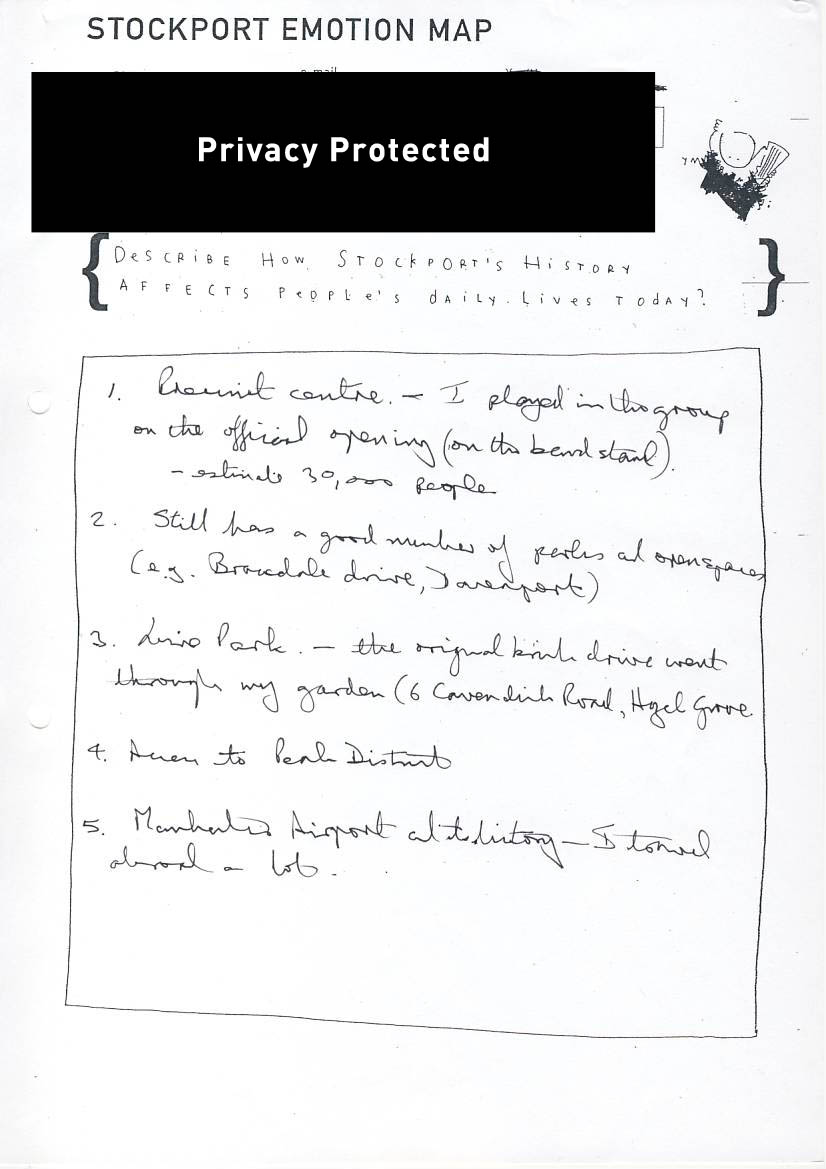 STOCKPORT EMOTION MAP
Privacy Protected
DESCRIBE HOW STOCKPORT'S HISTORY
AFFECTS PEOPLE'S DAILY LIVES TODAY?
1. Precinct centre. – I played in the group
on the official opening (on the band stand).
– estimate 30,000 people
2. Still has a good number of parks and open spaces
(e.g. drive, Davenport)
3. Park. – the original drive went
through my garden (6 Cavendish Road, Hazel Grove.
4. Access to Peak District
5. Manchester Airport and its history – I travel
abroad a lot.